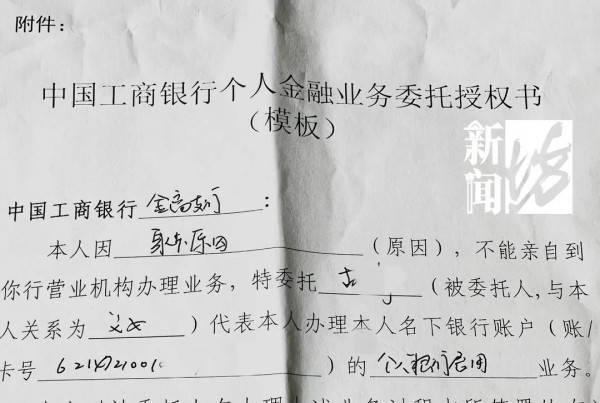 附件：
中国工商银行个人金融业务委托授权书
（模板）
新闻坊
中国工商银行 金高支行 ：
本人因 身体原因 （原因），不能亲自到
你行营业机构办理业务，特委托 （被委托人，与本
人关系为 父女 ）代表本人办理本人名下银行账户（账/
卡号 ）的 业务。